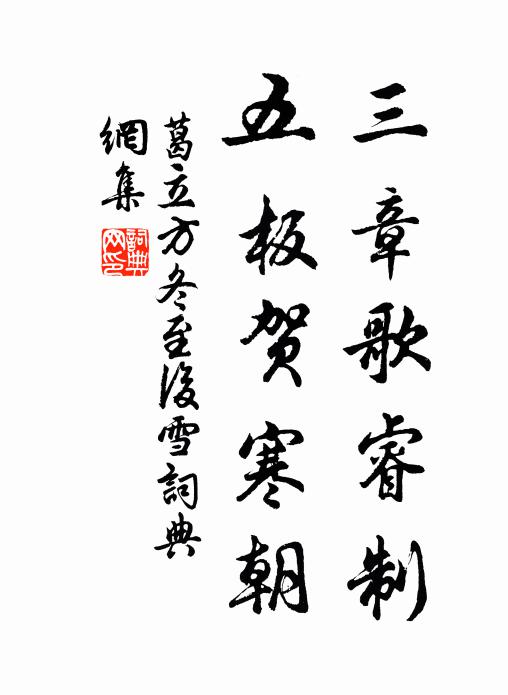 三章歌睿制
五板賀寒朝
葛立方冬至後雪詞典
網集
詞典網印